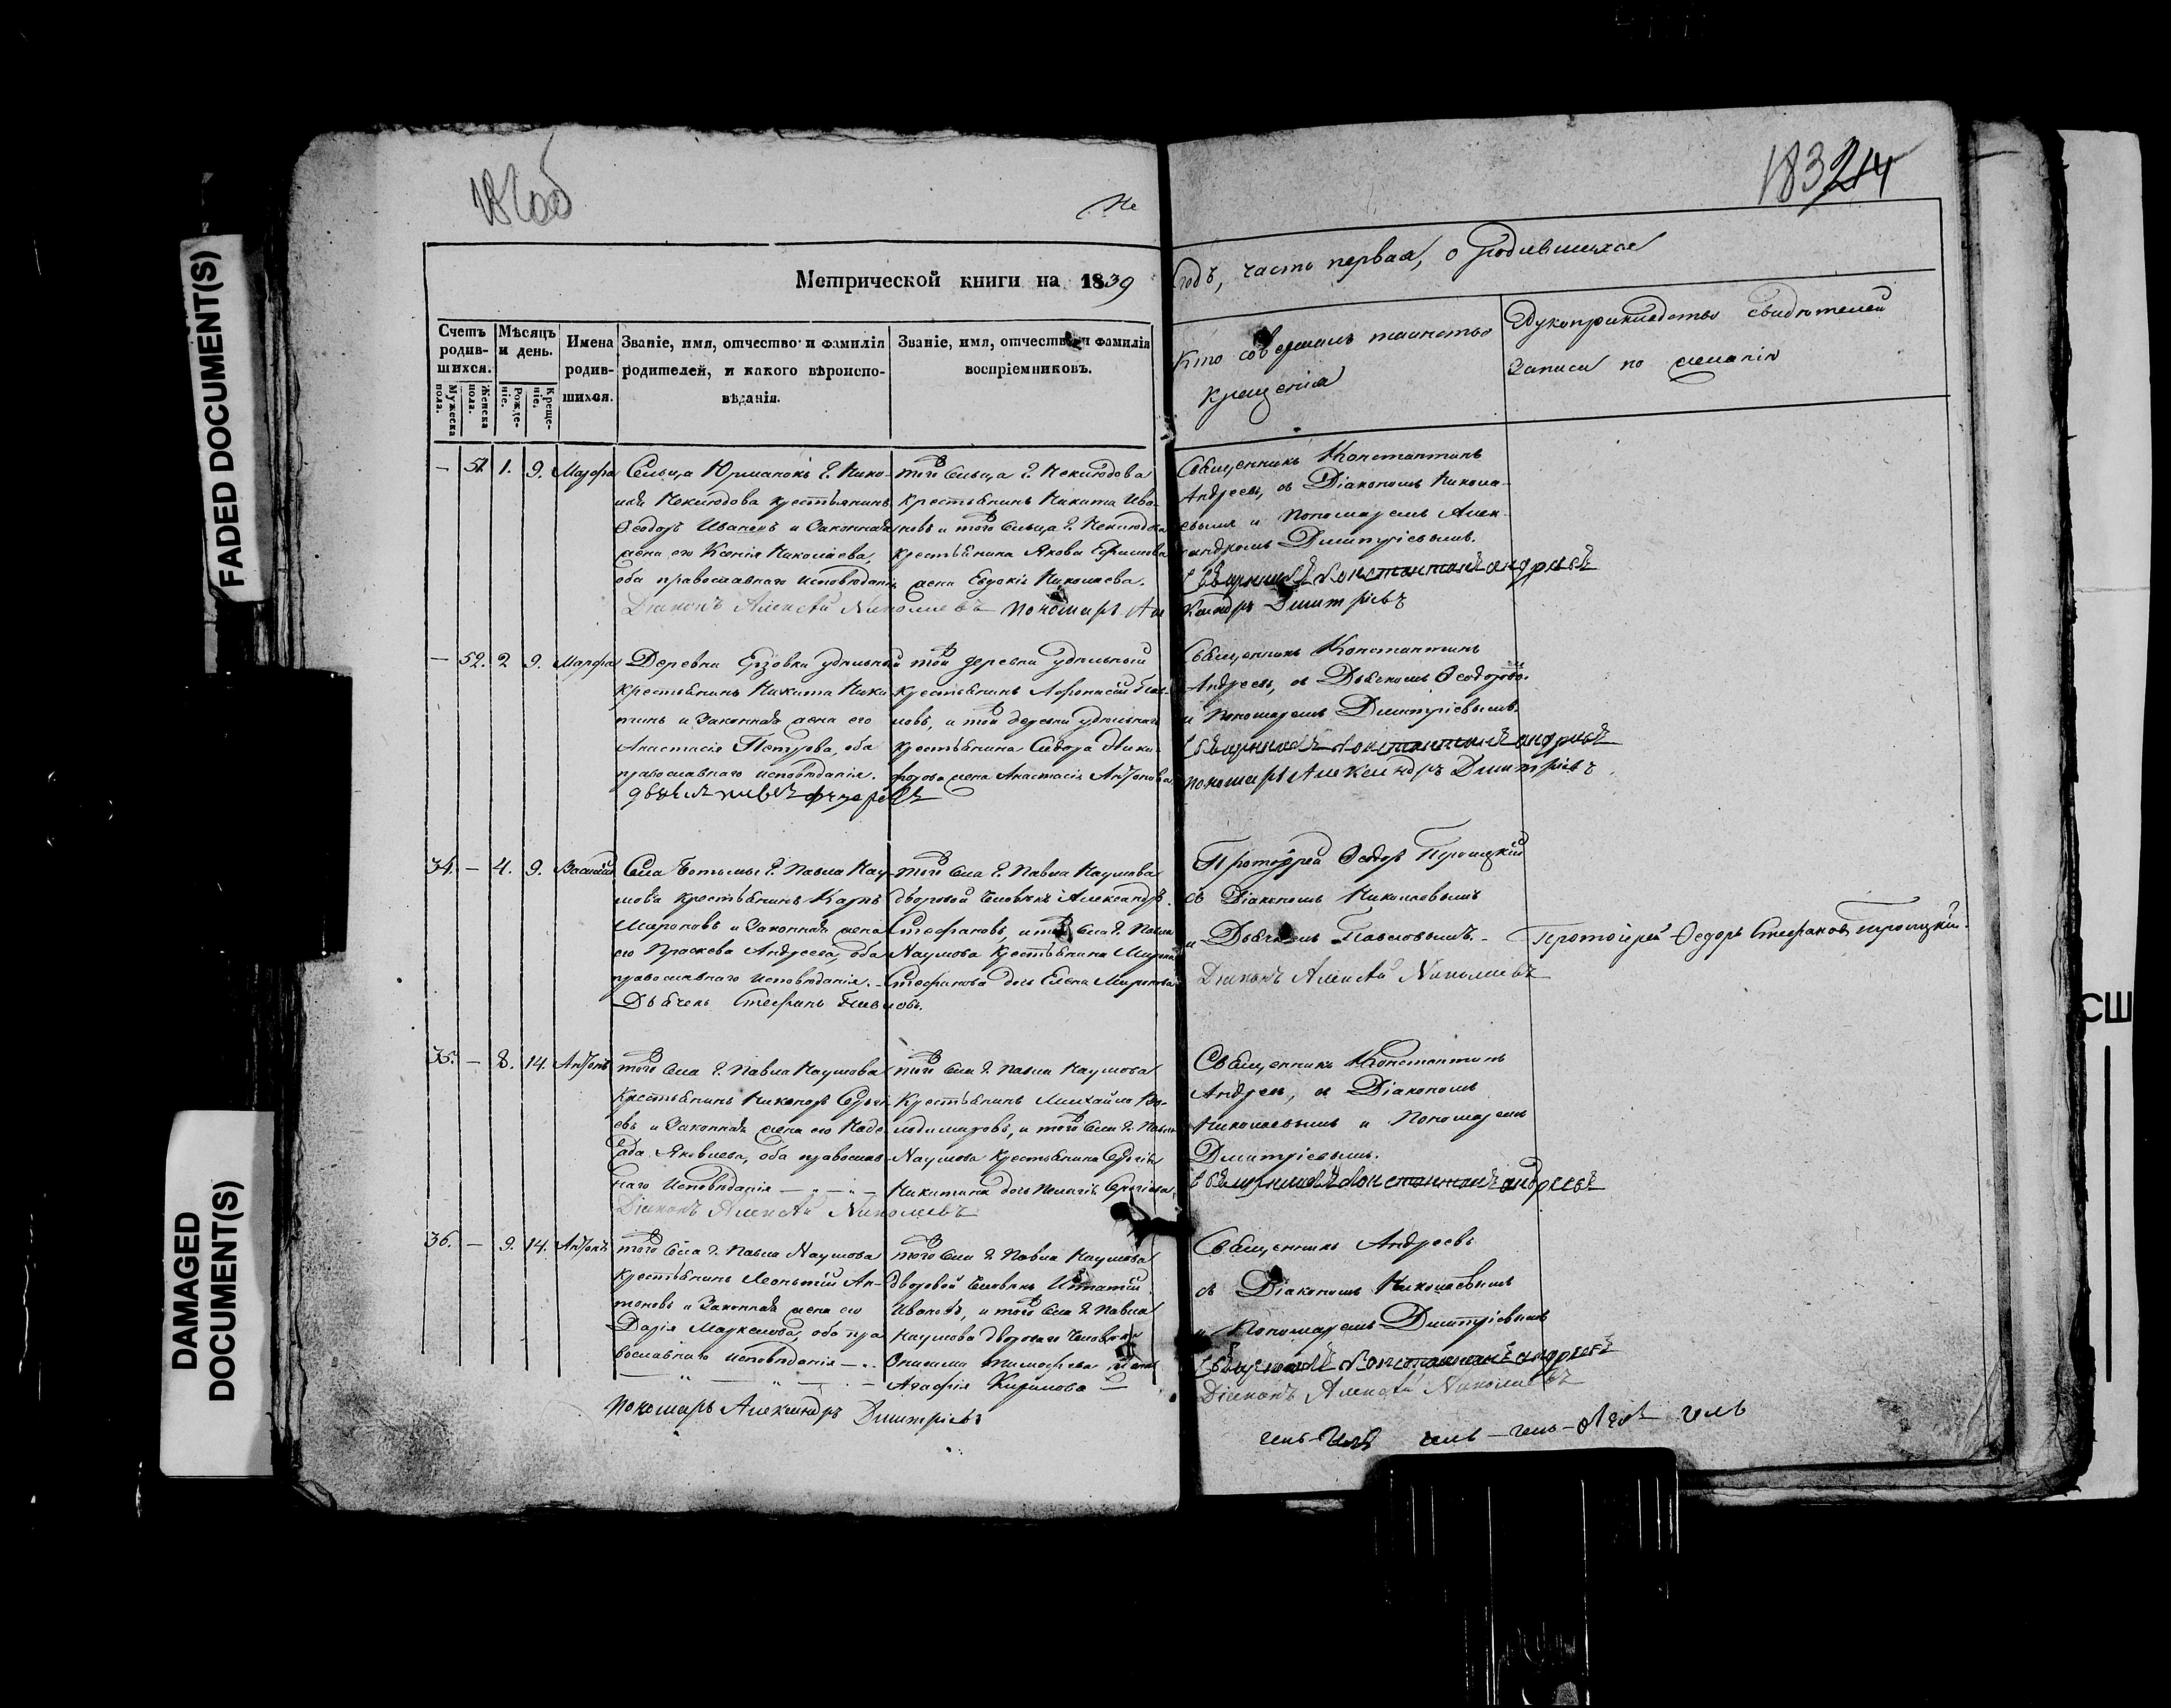 182об
183 214
Метрической книги на 1839
Годъ, часть первая, о родившихся
Счетъ родив-шихся.
Мужеска пола.
Женска пола.
Мѣсяцъ и день.
Рожде-ніе.
Креще-ніе.
Имена родив-шихся.
Званіе, имя, отчество и фамилія
родителей, и какого вѣроиспо-
вѣданія.
Званіе, имя, отчество и фамилія
воспріемниковъ.
Кто совершалъ таинство
крещенія
Рукоприкладство свидѣтелей
записи по желанію
— 51. 1. 9. Марфа
Сельца Юрманокъ Г. Нико-
лая Неклюдова крестьянинъ
Ѳеодоръ Ивановъ и законная
жена его Ксенія Николаева,
оба православнаго исповѣданія
того сельца Г. Неклюдова
крестьянинъ Никита Ива-
новъ и того сельца Г. Неклюдова
крестьянина Якова Ефимова
жена Евдокія Николаева.
Священникъ Константинъ
Андреевъ, съ Діакономъ Никола-
евымъ и Пономаремъ Алек-
сандромъ Дмитріевымъ.
Священникъ Константинъ Андреевъ
Діаконъ Алексѣй Николаевъ Пономарь Але
ксандръ Дмитріевъ
— 52. 2 9. Марфа
Деревни Ерзовки удѣльный
крестьянинъ Никита Ники-
тинъ и законная жена его
Анастасія Петрова, оба
православнаго исповѣданія.
той деревни удѣльный
крестьянинъ Афонасій
новъ, и той деревни удѣльнаго
крестьянина Сидора Ники-
форова жена Анастасія Антонова
Священникъ Константинъ
Андреевъ, съ Дьячкомъ Ѳеодоровымъ
и Пономаремъ Дмитріевымъ.
Священникъ Константинъ Андреевъ
Пономарь Александръ Дмитріевъ
34. — 4. 9. Василій
Села Ботьмы Г. Павла Нау-
мова крестьянинъ Карпъ
Мироновъ и законная жена
его Праскева Андреева, оба
православнаго исповѣданія.
Дьячекъ Стефанъ Павловъ.
того села Г. Павла Наумова
дворовой человѣкъ Александръ
Стефановъ, и того села Г. Павла
Наумова крестьянина Мирона
Стефанова дочь Елена Миронова
Протоіерей Ѳеодоръ Троицкій
съ Діакономъ Николаевымъ
и Дьячкомъ Павловымъ.
Діаконъ Алексѣй Николаевъ
Протоіерей Ѳедоръ Стефановъ Троицкій.
35. — 8. 14. Антонъ
того села Г. Павла Наумова
крестьянинъ Никаноръ Сергѣ-
евъ и законная жена его Наде-
жда Яковлева, оба православ-
наго исповѣданія
Діаконъ Алексѣй Николаевъ
того села Г. Павла Наумова
крестьянинъ Михайло Во-
лодимировъ, и того села Г. Павла
Наумова крестьянина Сергія
Никитина дочь Пелагія Сергіева
Священникъ Константинъ
Андреевъ, съ Діакономъ
Николаевымъ и Пономаремъ
Дмитріевымъ.
Священникъ Константинъ Андреевъ
36. — 9. 14. Антонъ
того села Г. Павла Наумова
крестьянинъ Леонтій Ан-
тоновъ и законная жена его
Дарія Маркелова, оба пра-
вославнаго исповѣданія
того села Г. Павла Наумова
дворовой человѣкъ Игнатій
Ивановъ, и того села Г. Павла
Наумова двороваго человѣка
Онисима Тимофеева жена
Агафія Кирилова
Священникъ Андреевъ
съ Діакономъ Николаевымъ
и Пономаремъ Дмитріевымъ
Священникъ Константинъ Андреевъ
Діаконъ Алексѣй Николаевъ
Пономарь Александръ Дмитріевъ
FADED DOCUMENT(S)
DAMAGED
DOCUMENT(S)
СШ